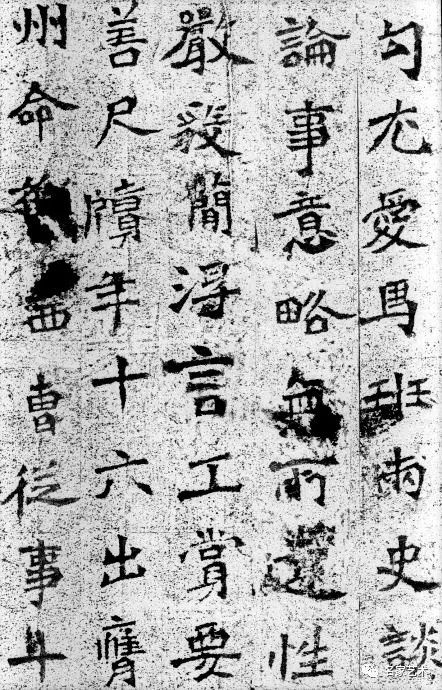 句尤愛馬班兩史談
論事意略無所遺性
嚴毅簡浮言工賞要
善尺牘年十六出膺
州命西曹從事